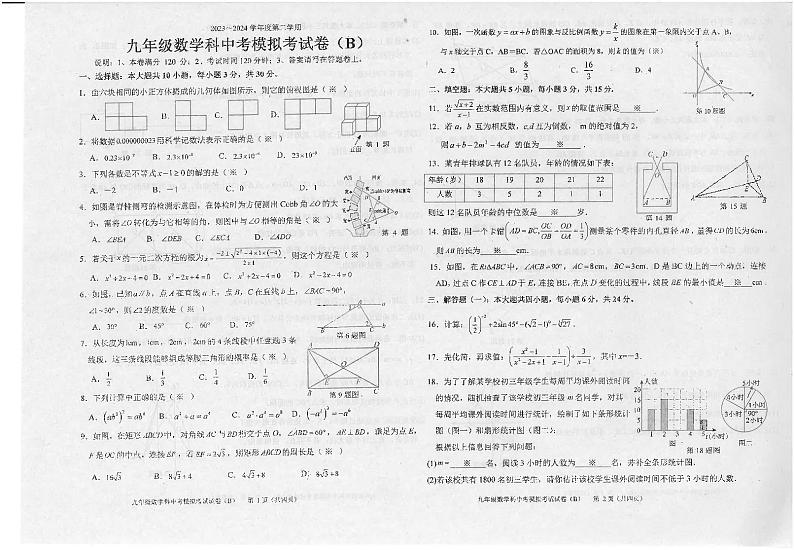 2023～2024学年度第二学期
九年级数学科中考模拟考试卷（B）
说明：1、本卷满分 120 分；2、考试时间 120 分钟；3、答案请写在答题卷上。
一、选择题：本大题共 10 小题，每小题 3 分，共 30 分。
1. 由六块相同的小正方体搭成的几何体如图所示，则它的俯视图是（ ※ ）
A. B. C. D.
正面 第 1 题
2. 将数据0.000000023用科学记数法表示正确的是（ ※ ）
A. 0.23×10⁻⁷ B. 2.3×10⁻⁸ C. 2.3×10⁻⁹ D. 23×10⁻⁹
3. 下列各数是不等式x－1≥0的解的是（ ※ ）
A. －2 B. －1 C. 0 D. 1
4. 如图是脊柱侧弯的检测示意图，在体检时为方便测出 Cobb 角∠O的大
小，需将∠O转化为与它相等的角，则图中与∠O相等的角是（ ※ ）
A. ∠BEA B. ∠DEB C. ∠ECA D. ∠ADO
第 4 题
5. 若关于x的一元二次方程的根为x=(-2±√(2²-4×1×(-4)))/(2×1)，则这个方程是（ ※ ）
A. x²+2x－4=0 B. x²+2x+4=0 C. x²－2x+4=0 D. x²－2x－4=0
6. 如图，已知a∥b，点A在直线a上，点B，C在直线b上，∠BAC=90°，
∠1=30°，则∠2的度数是（ ※ ）
A. 30° B. 45° C. 60° D. 75°
第6题图
7. 从长度为1cm，1cm，2cm，2cm的4条线段中任意选3条
线段，这三条线段能够组成等腰三角形的概率是（ ※ ）
A. 1/2 B. 1/3 C. 1/4 D. 1/6
8. 下列计算中正确的是（ ※ ）
第9题图
9. 如图，在矩形ABCD中，对角线AC与BD相交于点O，∠ABD=60°，AE⊥BD，垂足为点E，
F是OC的中点，连接EF，若EF=2√3，则矩形ABCD的周长是（ ※ ）
A. 16√3 B. 8√3+4 C. 4√3+8 D. 8√3+8
九年级数学科中考模拟考试试卷（B） 第 1 页（共四页）
10. 如图，一次函数y=ax+b的图象与反比例函数y=k/x的图象在第一象限内交于点A、B，
与x轴交于点C，AB=BC. 若△OAC的面积为8，则k的值为（※）
A. 2 B. 8/3 C. 16/3 D. 4
第10题图
二、填空题：本大题共5小题，每小题3分，共15分.
11. 若√(x+2)/(x－1)在实数范围内有意义，则x的取值范围是 ※ .
12. 若a，b 互为相反数，c,d互为倒数， m的绝对值为2，
则a+b－2m²－4cd 的值为 ※ .
13. 某青年排球队有12名队员，年龄的情况如下表：
年龄（岁） 18 19 20 21 22
人数 3 5 2 1 1
则这12名队员年龄的中位数是 ※ 岁.
第14题 第15题
14. 如图，用一个卡钳(AD=BC, OC/OB=OD/OA=1/3)测量某个零件的内孔直径AB，量得CD的长为6cm，
则AB的长为 ※ cm.
15. 如图，在Rt△ABC中，∠ACB=90°，AC=8cm，BC=3cm. D是BC边上的一个动点，连接
AD，过点C作CE⊥AD于E，连接BE，在点D变化的过程中，线段BE的最小值是 ※ cm.
三、解答题（一）：本大题共四小题，每小题6分，共24分.
16. 计算：(1/2)⁻²+2sin45°－(√2－1)⁰－∛27.
17. 先化简，再求值：((x²－1)/(x²－2x+1)－1/(x－1))÷3/(x－1)，其中x=－3.
18. 为了了解某学校初三年级学生每周平均课外阅读时间
的情况，随机抽查了该学校初三年级m名同学，对其
每周平均课外阅读时间进行统计，绘制了如下条形统计
图（图一）和扇形统计图（图二）：
根据以上信息回答下列问题：
人数
20
15
10
5
0 1 2 3 4 5 t(小时)
图一
5小时
4小时
1小时
3小时
90°
2小时
图二
第18题图
(1)m= ※ 名，阅读3小时的人数为 ※ 名，并补全条形统计图.
(2)若该校共有1800名初三学生，请你估计该校学生课外阅读时间不低于3小时的人数.
九年级数学科中考模拟考试试卷（B） 第 2 页（共四页）